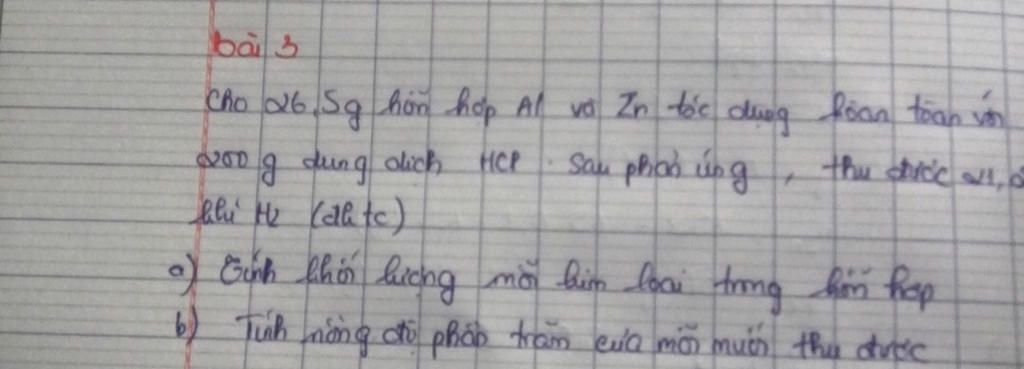 bài 3
Cho 26,5g hỗn hợp Al và Zn tác dụng hoàn toàn với
200 g dung dịch HCl. Sau phản ứng, thu được
khí H2 (đktc)
a) Tính khối lượng mỗi kim loại trong hỗn hợp
b) Tính nồng độ phần trăm của mỗi muối thu được